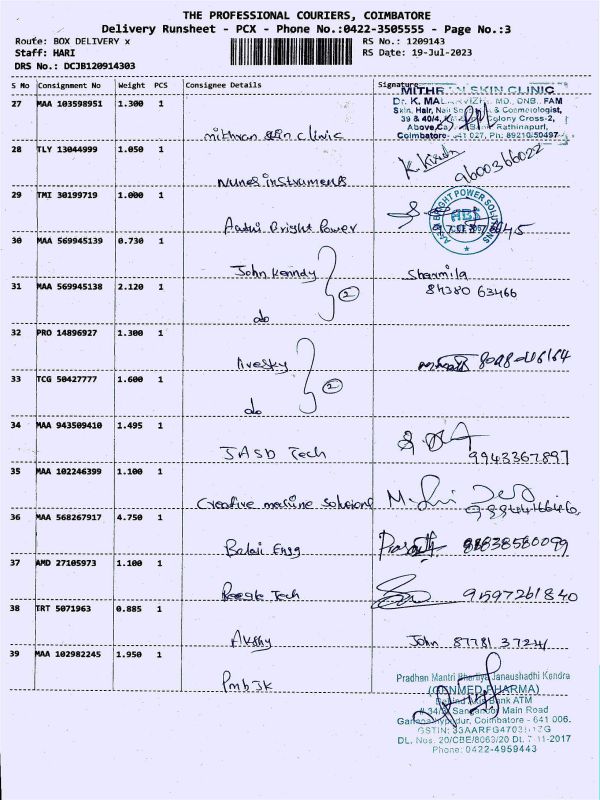 THE PROFESSIONAL COURIERS, COIMBATORE
Delivery Runsheet - PCX - Phone No.:0422-3505555 - Page No.:3
Route: BOX DELIVERY x RS No.: 1209143
Staff: HARI RS Date: 19-Jul-2023
DRS No.: DCJB120914303
S No Consignment No Weight PCS Consignee Details Signature
27 MAA 103598951 1.300 1
MITHRAN SKIN CLINIC
Dr. K. MD., DNB., FAM
Skin, Hair, Nail & Cosmetologist,
39 & 40/4, Colony Cross-2,
Above Bank Rathinapuri,
Coimbatore- 641 027, Ph: 89210 50497
mithran skin clinic
28 TLY 13044999 1.050 1
9600366022
Nunes instruments
29 TMI 30199719 1.000 1
A&B BRIGHT POWER SOLUTIONS
ABS
Bright Power
30 MAA 569945139 0.730 1
John Kenndy Sharmila
84380 63466
31 MAA 569945138 2.120 1
2
do
32 PRO 14896927 1.300 1
Avesky
33 TCG 50427777 1.600 1
2
do
34 MAA 943509410 1.495 1
JASD Tech 9943367897
35 MAA 102246399 1.100 1
Creative machine solutions
36 MAA 568267917 4.750 1
Balaji Engg
37 AMD 27105973 1.100 1
Tech 9597261840
38 TRT 5071963 0.885 1
Akshy John 87781 37241
39 MAA 102982245 1.950 1
PmbJK
Pradhan Mantri Bhartiya Janaushadhi Kendra
(GENMED PHARMA)
Bank ATM
# 34/ Main Road
Coimbatore - 641 006.
GSTIN: 33AARFG4703
DL. Nos. 20/CBE/8063/20 DL 7-11-2017
Phone: 0422-4959443